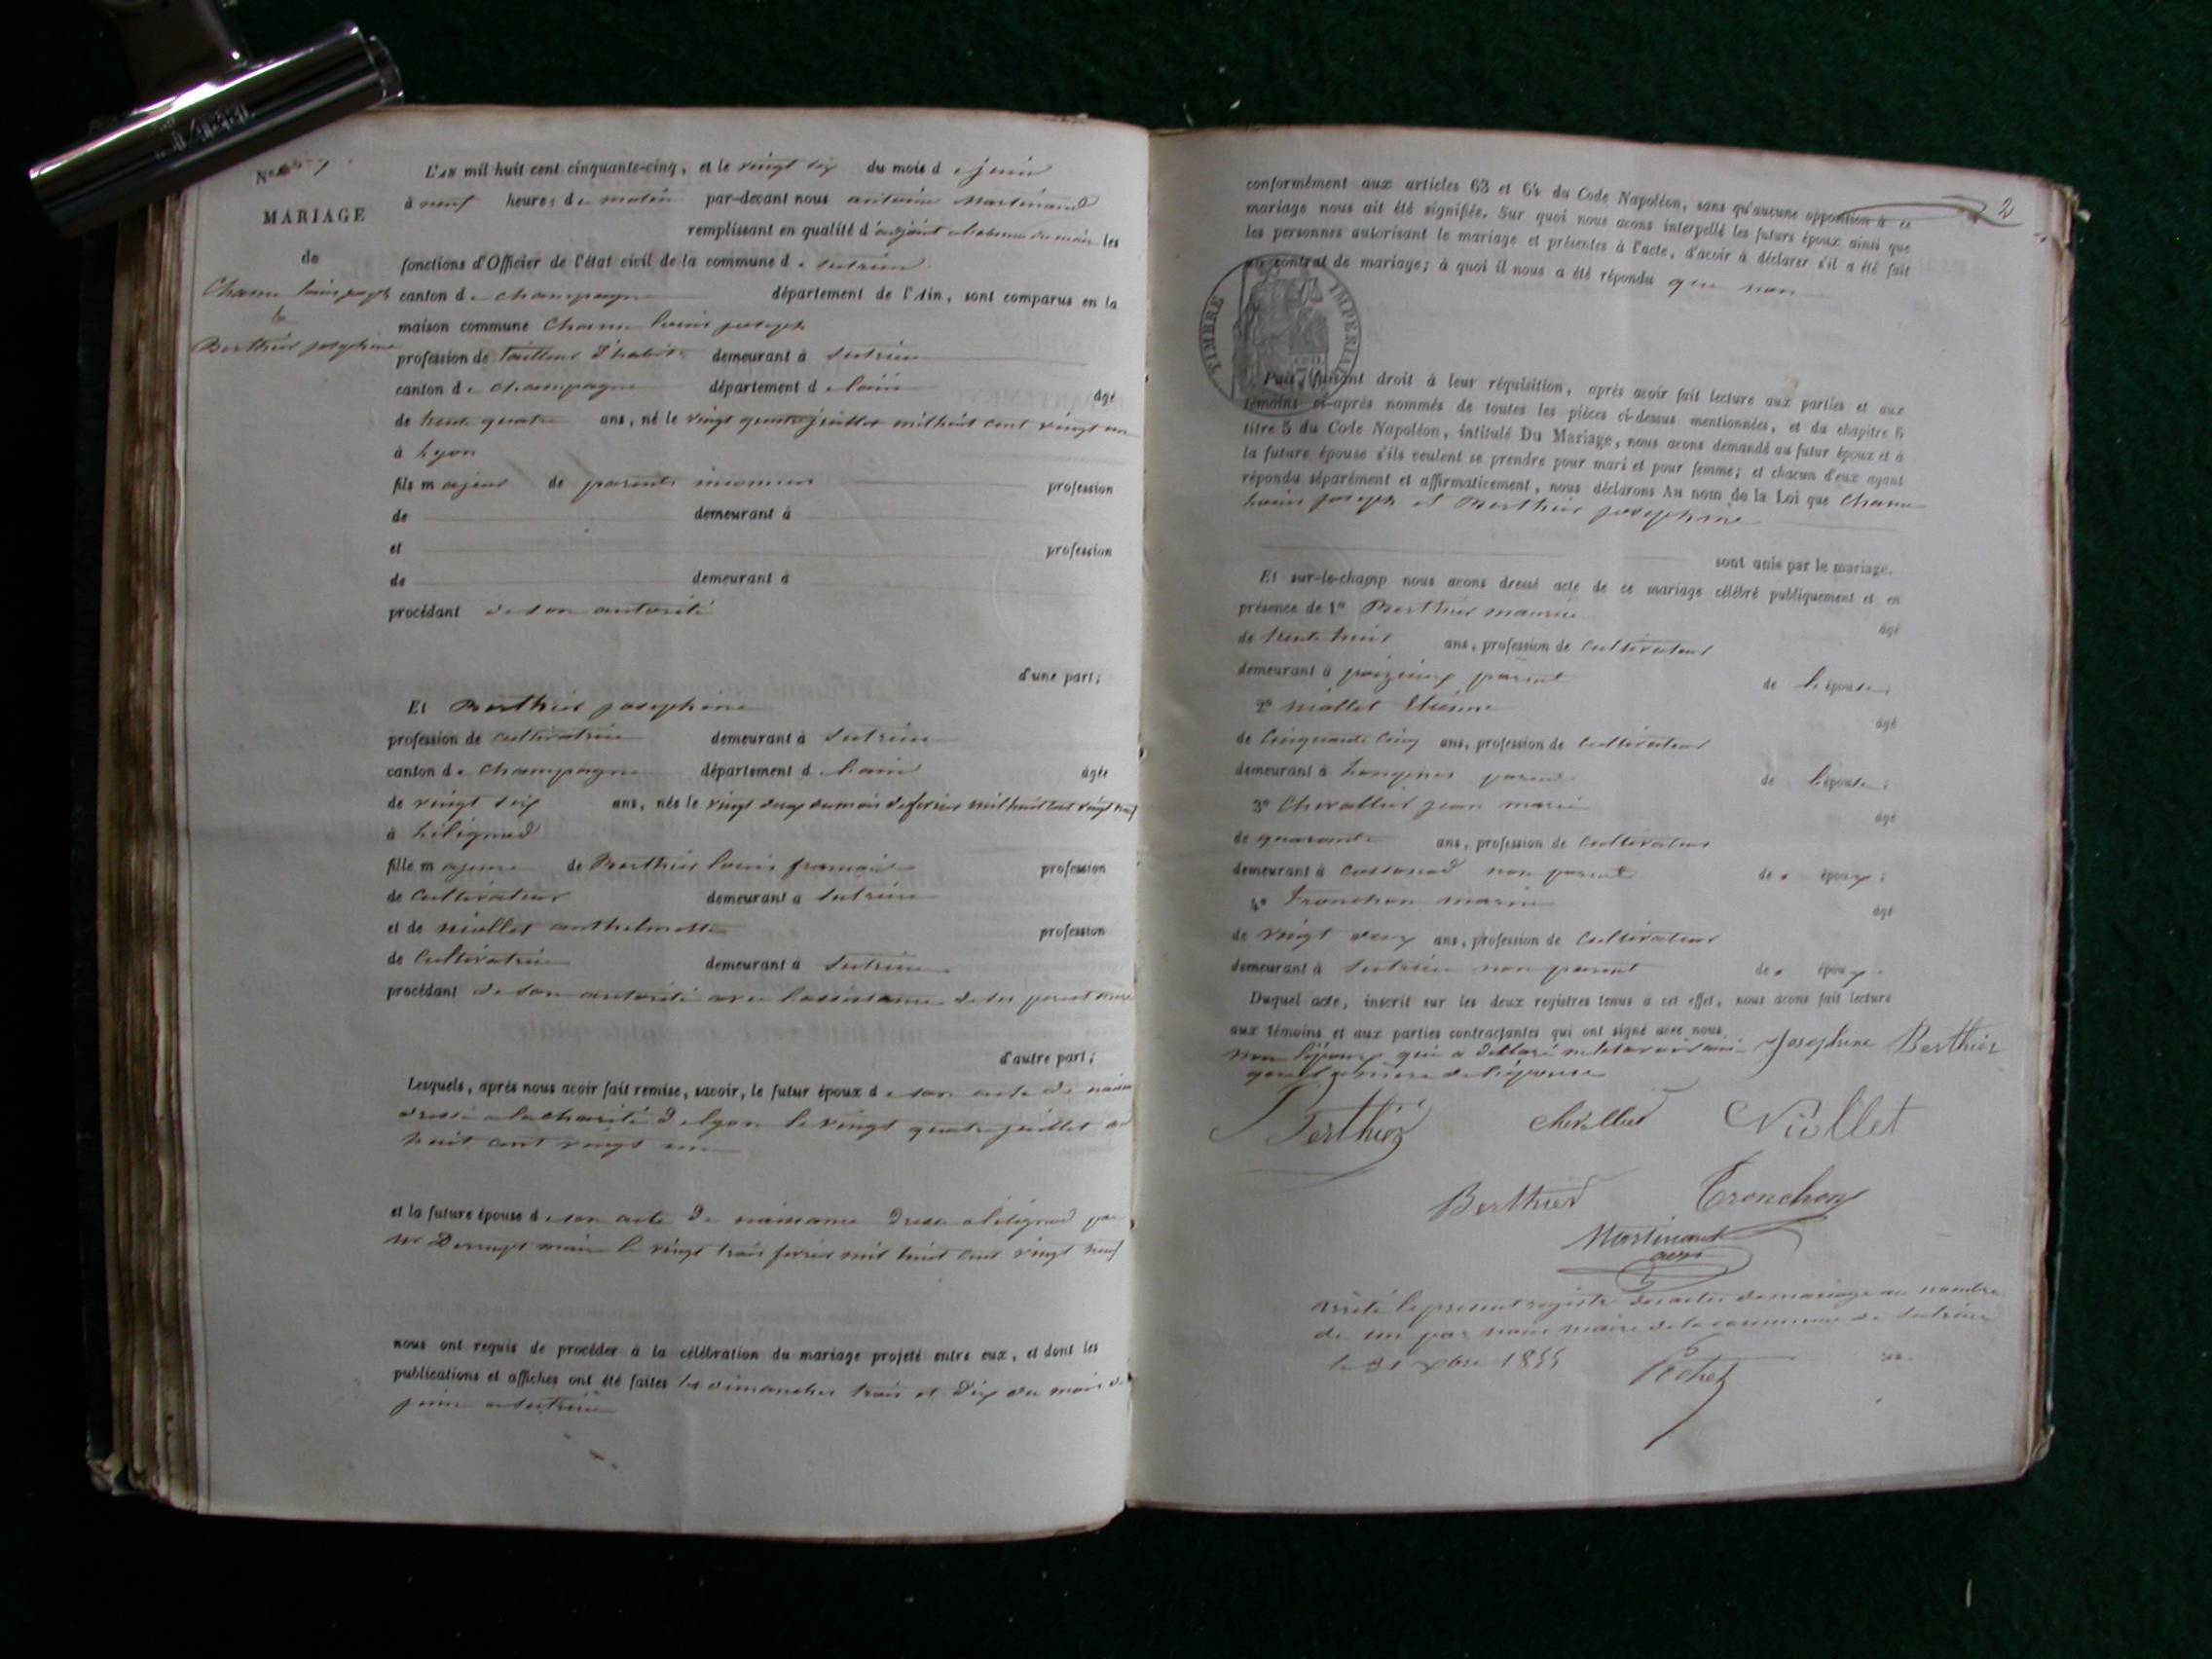 N° 1
MARIAGE
de
Chanu louis joseph
&
Berthier josephine
L'AN mil huit cent cinquante-cinq, et le vingt six du mois de juin
à neuf heures de matin par-devant nous antoine Martinand
remplissant en qualité d'adjoint les
fonctions d'Officier de l'état civil de la commune de Sutrieu
canton de champagne département de l'Ain, sont comparus en la
maison commune Chanu louis joseph
profession de tailleur d'habits demeurant à Sutrieu
canton de champagne département de l'ain âgé
de trente quatre ans, né le vingt quatre juillet mil huit cent vingt un
à Lyon
fils majeur de parents inconnus profession
de demeurant à
et profession
de demeurant à
procédant de son autorité
d'une part;
Et Berthier josephine
profession de cultivatrice demeurant à Sutrieu
canton de Champagne département de l'ain âgée
de vingt six ans, née le vingt deux du mois de fevrier mil huit cent vingt neuf
à Lilignod
fille majeure de Berthier louis francois profession
de Cultivateur demeurant à Sutrieu
et de niollet anthelmette profession
de Cultivatrice demeurant à Sutrieu
procédant de son autorité avec l'assistance de ses pere et mere
d'autre part;
Lesquels, après nous avoir fait remise, savoir, le futur époux de son acte de
dressé a la charité de lyon le vingt quatre juillet
huit cent vingt un
et la future épouse de son acte de naissance dressé a lilignod par
mr maire le vingt trois fevrier mil huit cent vingt neuf
nous ont requis de procéder à la célébration du mariage projeté entre eux, et dont les
publications et affiches ont été faites les dimanches trois et dix du mois de
juin a Sutrieu
2
conformément aux articles 63 et 64 du Code Napoléon, sans qu'aucune opposition à ce
mariage nous ait été signifiée. Sur quoi nous avons interpellé les futurs époux ainsi que
les personnes autorisant le mariage et présentes à l'acte, d'avoir à déclarer s'il a été fait
un contrat de mariage; à quoi il nous a été répondu que non
TIMBRE IMPERIAL
70
Puis, faisant droit à leur réquisition, après avoir fait lecture aux parties et aux
témoins ci-après nommés de toutes les pièces ci-dessus mentionnées, et du chapitre 6
titre 5 du Code Napoléon, intitulé Du Mariage, nous avons demandé au futur époux et à
la future épouse s'ils veulent se prendre pour mari et pour femme; et chacun d'eux ayant
répondu séparément et affirmativement, nous déclarons Au nom de la Loi que Chanu
louis joseph et Berthier josephine
sont unis par le mariage.
Et sur-le-champ nous avons dressé acte de ce mariage célébré publiquement et en
présence de 1° Berthier maurice âgé
de trente huit ans, profession de Cultivateur
demeurant à poizieux parent de l'épouse;
2° niollet Etienne âgé
de Cinquante Cinq ans, profession de Cultivateur
demeurant à Longines parent de l'épouse;
3° Chevallier jean marie âgé
de quarante ans, profession de Cultivateur
demeurant à Cossonod non parent des époux;
4° Tronchon marin âgé
de vingt deux ans, profession de Cultivateur
demeurant à Sutrieu non parent des époux.
Duquel acte, inscrit sur les deux registres tenus à cet effet, nous avons fait lecture
aux témoins et aux parties contractantes qui ont signé avec nous
non l'époux qui a déclaré ne le savoir ainsi Josephine Berthier
que la mere de l'épouse
Berthier chevallier Niollet
Berthier Tronchon
Martinand
adjt
arrêté le present registre des actes de mariage au nombre
de un par nous maire de la commune de Sutrieu
le 31 xbre 1855